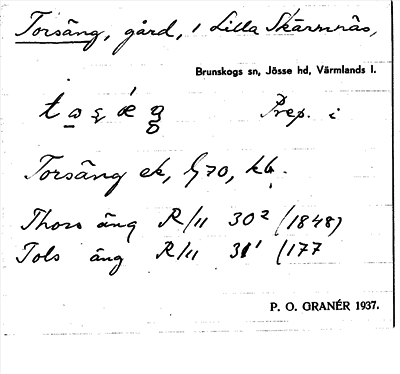 Torsäng, gård, i Lilla Skärmnäs,
Brunskogs sn, Jösse hd, Värmlands l.
Prep. i
Torsäng ek, G 70, kb.
Thors äng R/11 30² (1848)
Tols äng R/11 31¹ (177
P. O. GRANÉR 1937.